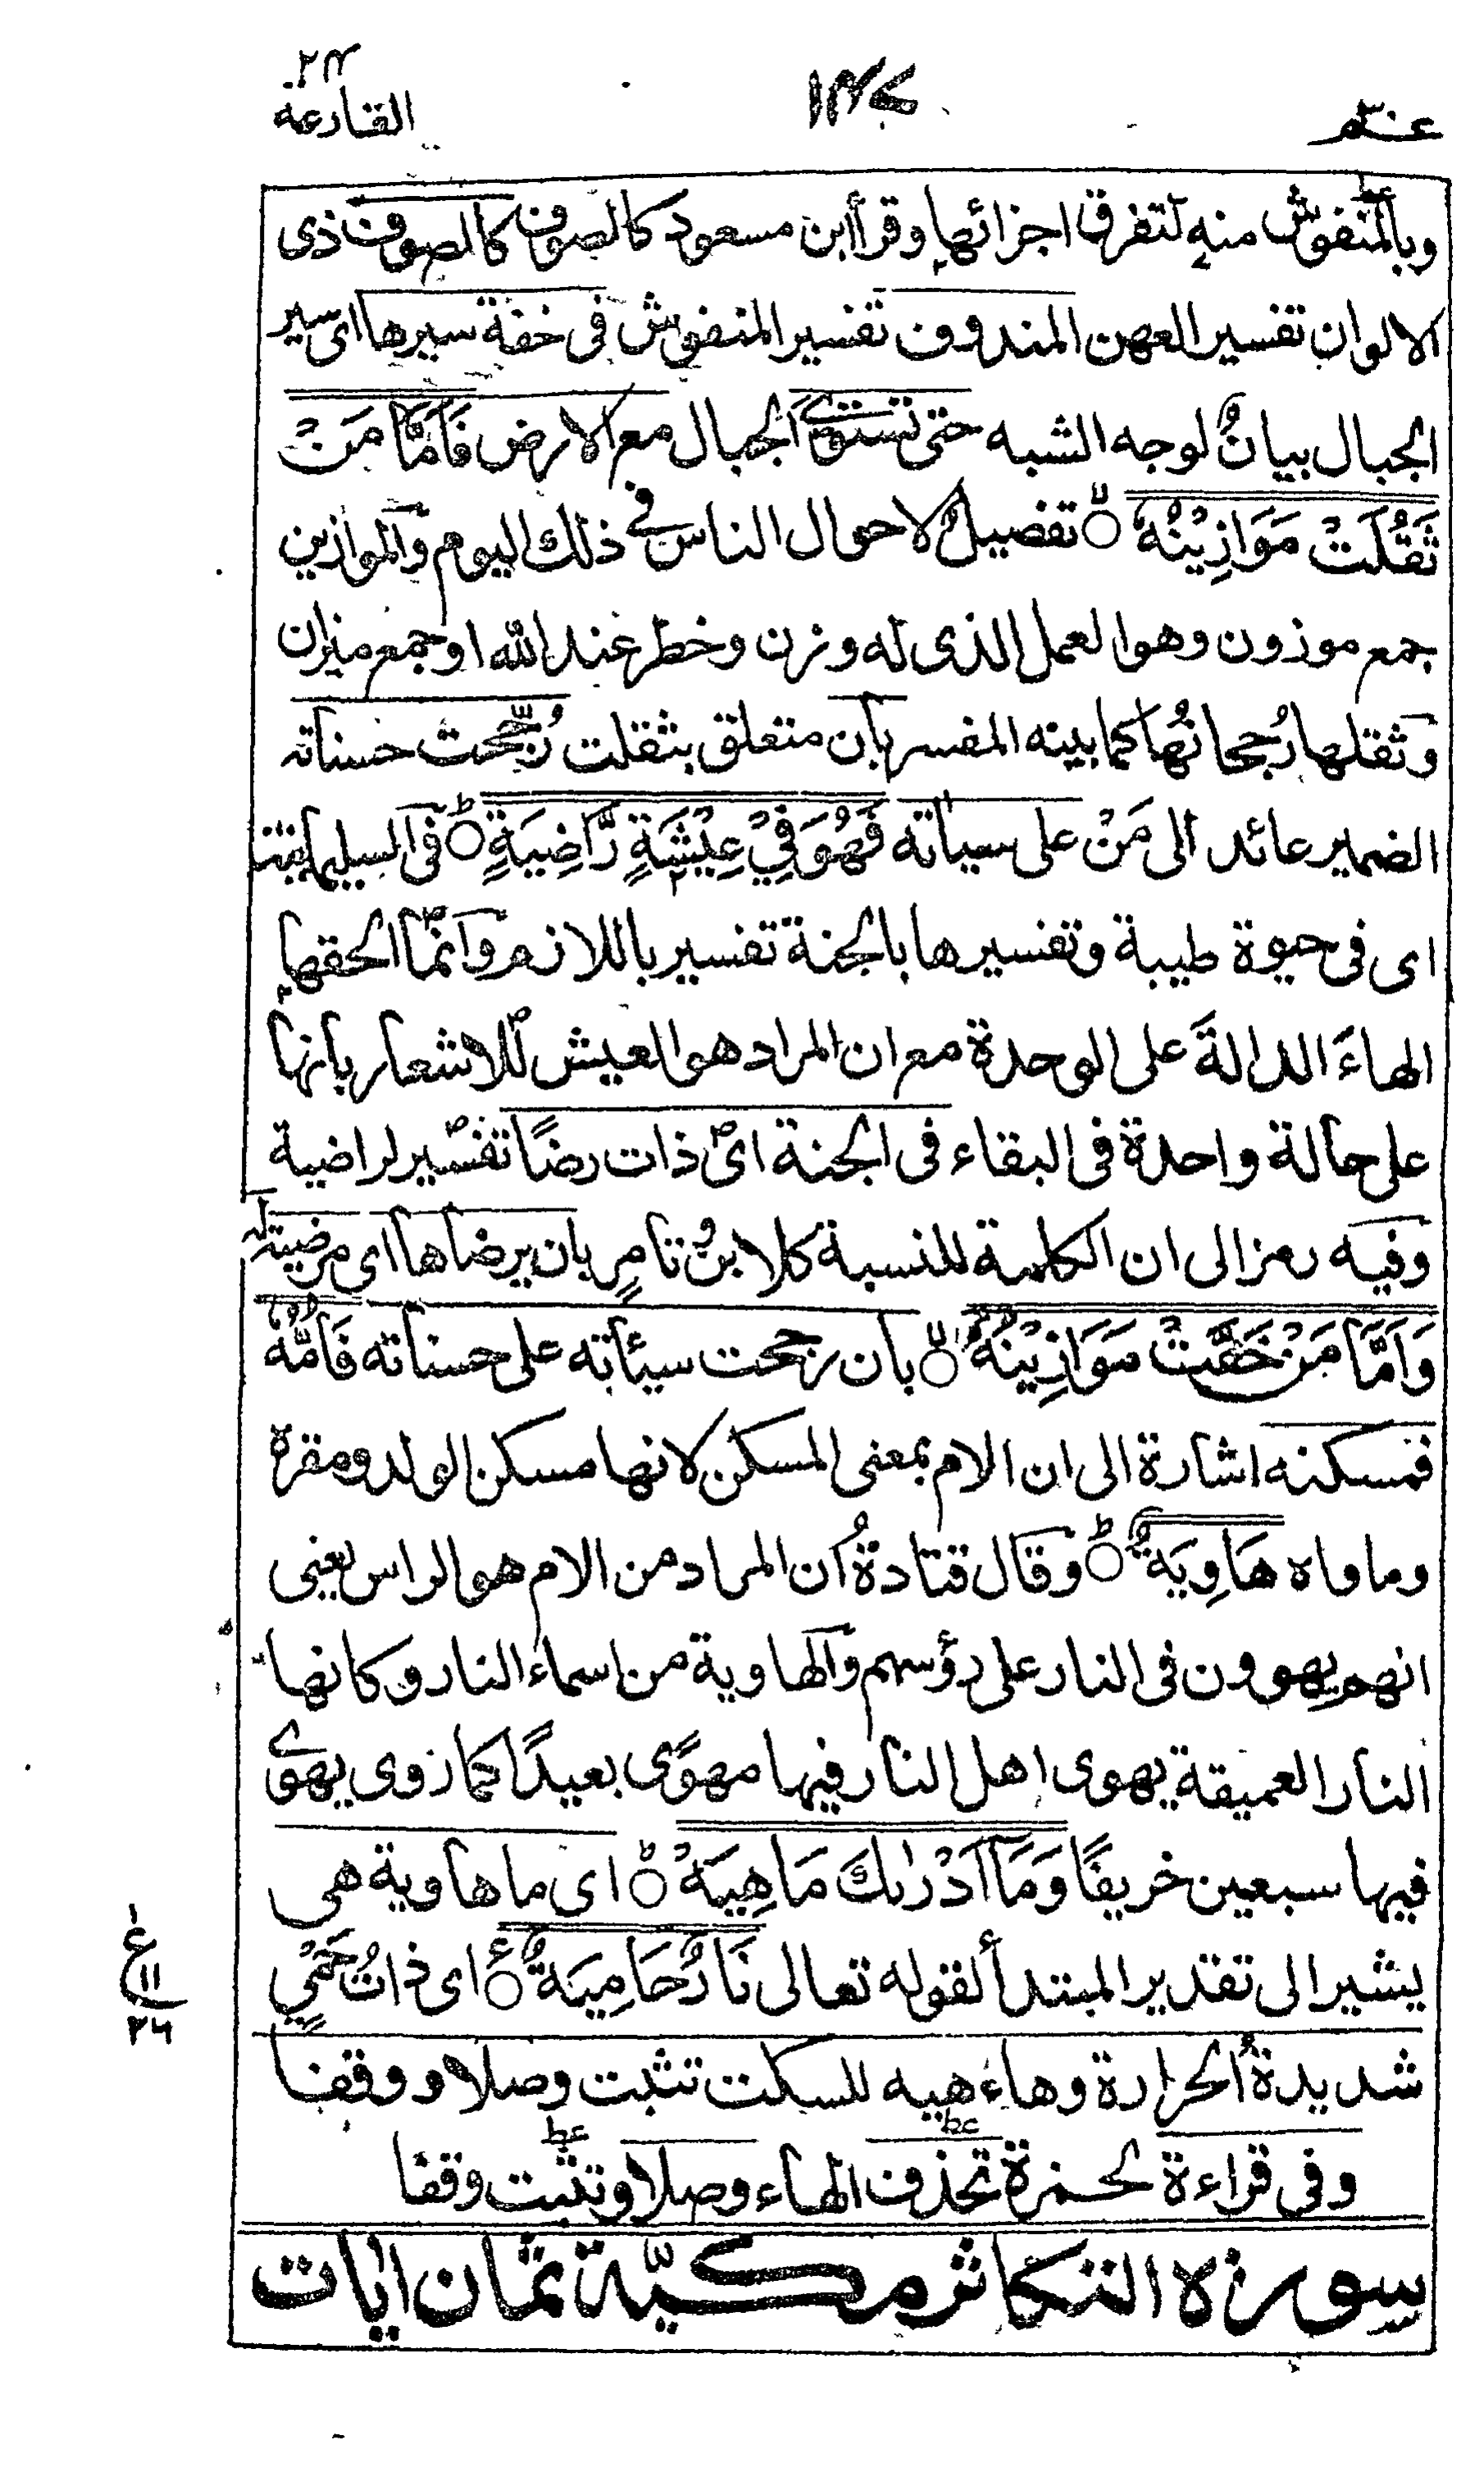 عم ٣٠
١٢٤٧
٢٤
القارعة
وبالمنفوش منه لتفرق اجزائها وقرأ ابن مسعود كالصوف كالصوف ذى
الالوان تفسير العهن المندوف تفسير المنفوش فى خفة سيرها اى سير
الجبال بيانٌ لوجه الشبه حتى تستوى الجبال مع الارض فَاَمَّا مَنْ
ثَقُلَتْ مَوَازِيْنُهٗ ۙ تفصيلٌ لاحوال الناس فے ذلك اليوم والموازين
جمع موزون وهو العمل الذى له وزن وخطر عند الله او جمع ميزان
وثقلها رُجحانُها كما بينه المفسر بان متعلق بثقلت رُجِّحت حسناته
الضمير عائد الى مَنْ على سياٰته فَهُوَ فِيْ عِيْشَةٍ رَّاضِيَةٍ ؕ فى السليم
اى فى حيوة طيبة وتفسيرها بالجنة تفسير باللازم وانّما الحقها
الهاءَ الدالةَ على الوحدة مع ان المراد هو العيش للاشعار بانها
على حالة واحدة فى البقاء فى الجنة اى ذات رضًا تفسير لراضية
وفيه رمز الى ان الكلمة للنسبة كلابنٍ تامرٍ بان يرضاها اى مرضية له
وَاَمَّا مَنْ خَفَّتْ مَوَازِيْنُهٗ ۙ بان رجحت سيئاته على حسناته فَاُمُّهٗ
فمسكنه اشارة الى ان الام بمعنى المسكن لانها مسكن الولد ومقره
وماواه هَاوِيَةٌ ؕ وقال قتادةُ ان المراد من الام هو الراس يعنى
انهم يهوون فى النار على رؤسهم والهاوية من اسماء النار وكانها
النار العميقة يهوى اهل النار فيها مهوًى بعيدًا كما روى يهوى
فيها سبعين خريفًا وَمَآ اَدْرٰىكَ مَاهِيَهْ ؕ اى ما هاوية هى
يشير الى تقدير المبتدأ لقوله تعالى نَارٌ حَامِيَةٌ ۧ اى ذاتُ حَمْيٍ
شديدةُ الحرارة وهاء هيه للسكت تثبت وصلا ووقفا
وفى قراءة لحمزة تحذف الهاء وصلا وتثبت وقفا
ع
١
١١
٢٦
سورة التكاثر مكيّة ثمان ايات